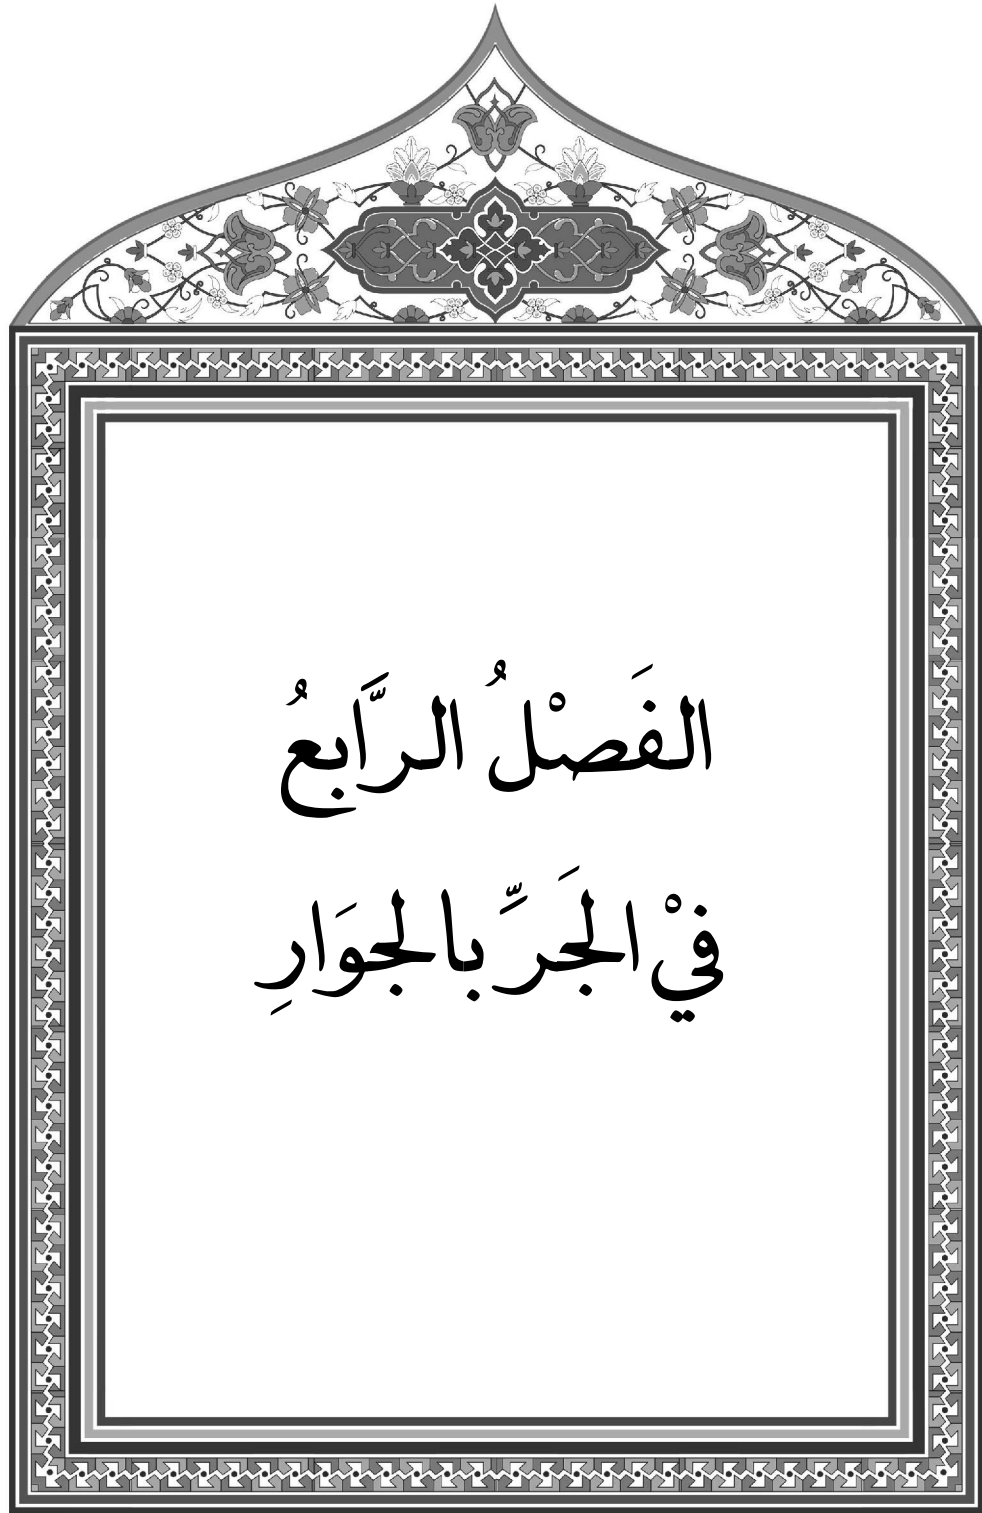 الفَصْلُ الرَّابعُ
فيْ الجَرِّ بالجوَارِ